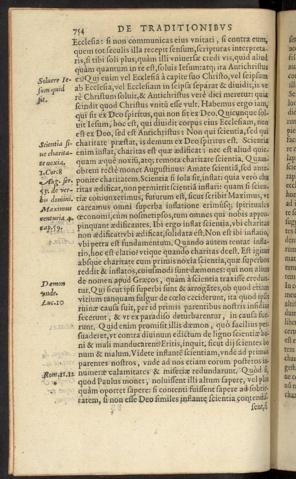 754 DE TRADITIONIBVS
Ecclesia: si non communicas eius vnitati, si contra eum,
quem tot seculis illa recepit sensum, scripturas interpreta-
ris, si tibi soli plus, quàm illi vniuersæ credi vis, quid aliud
quàm quantum in te est, soluis Iesum: atq; ita Antichristus
es. Qui enim vel Ecclesiã à capite suo Christo, vel seipsum
Soluere Ie-
sum quid
sit.
ab Ecclesia, vel Ecclesiam in seipsa separat & diuidit, is ve
rè Christum soluit, & Antichristus verè dici meretur: quia
scindit quod Christus vnitũ esse vult. Habemus ergo iam,
qui sit ex Deo spiritus, qui non sit ex Deo. Quicunque sol
uit Iesum, hoc est, qui diuidit corpus eius Ecclesiam, non
est ex Deo, sed est Antichristus: Non qui scientia, sed qui
Scientia si-
ne charita-
te noxia.
charitate præstat, is demum ex Deo spiritus est. Scientia
enim inflat, charitas est quæ ædificat: nec est aliud quic-
quam æquè noxiũ, atq; remota charitate scientia. Quam-
1.Cor.8
obrem rectè monet Augustinus: Amate scientiã, sed ante-
ponite charitatem. Scientia si sola sit, inflat: quia verò cha
ritas ædificat, non permittit scientiã inflari: quam si scien-
tiæ coniunxerimus, futurum est, sicut scribit Maximus, vt
Maximus
careamus omni superba inflatione:
non ædificaueritis vbi ædificat, solidata est. Non est ibi inflatio,
vbi petra est fundamentum. Quando autem tentat infla-
tio, hoc est elatio: vtique quando charitas deest. Est igitur
absque charitate cum primis noxia scientia, quæ superbos
reddit & inflatos, cuiusmodi sunt dæmones: qui non alius
Dæmon
vnde.
de nomen apud Græcos, quàm à scientia traxisse credun-
tur. Qui sicut ipsi superbi sunt & arrogãtes, ob quod etiam
Luc.10
vitium tanquam fulgur de cœlo ceciderunt, ita quod ipsis
ruinæ causa fuit, per id primis parentibus nostris insidias
fecerunt, & vt ex paradiso deturbarentur, in causa fue-
runt. Quid enim promisit illis dæmon, quò facilius per-
suaderet, vt contra diuinum edictum de ligno scientiæ bo-
ni & mali manducarent? Eritis, inquit, sicut dij scientes bo
num & malum. Videte inflantẽ scientiam, vnde ad primos
parentes nostros, vnde ad nos etiam eorum posteros in-
numeræ calamitates & miseriæ redundarunt. Quòd si,
Rom.11.12
quod Paulus monet, noluissent illi altum sapere, vel plus
quàm oportet sapere: si contenti fuissent sapere ad sobrie-
tatem, si non esse Deo similes inflante scientia contendis-
sent,